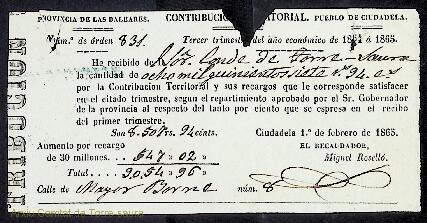 TRIBUCION
PROVINCIA DE LAS BALEARES. CONTRIBUCION TERRITORIAL. PUEBLO DE CIUDADELA.
Núm.º de órden 831. Tercer trimestre del año económico de 1864 á 1865.
Ha recibido de Sor. Conde de Torre-Saura
la cantidad de ocho mil quinientos siete rs. 94 cs
por la Contribucion Territorial y sus recargos que le corresponde satisfacer
en el citado trimestre, segun el repartimiento aprobado por el Sr. Gobernador
de la provincia al respecto del tanto por ciento que se espresa en el recibo
del primer trimestre.
Son 8.507 rs. 94 cénts. Ciudadela 1.º de febrero de 1865.
Aumento por recargo EL RECAUDADOR,
de 30 millones... 547 » 02 » Miguel Roselló.
Total.... 9.054 » 96 »
Calle de Mayor Borne núm. 8
Comtat de Torre-saura